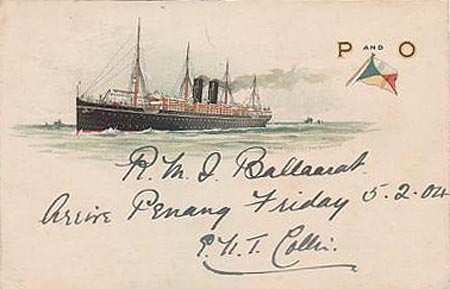 P AND O
R.M.S. Ballaarat.
Arrive Penang Friday 5.2.04